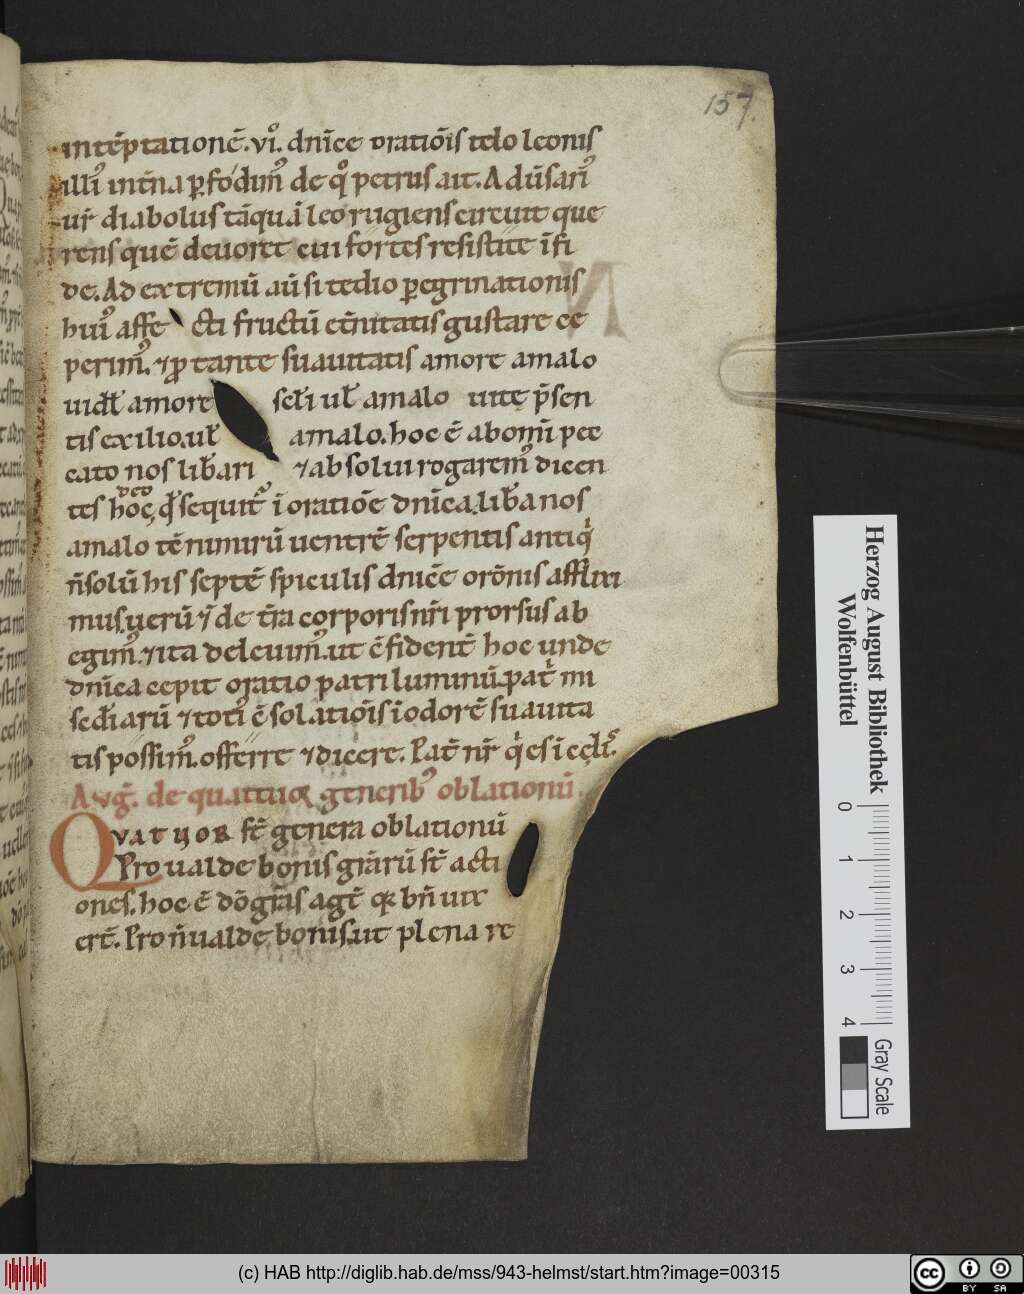 157.
intẽptationẽ. viͦ. dnīce oratiōis telo leonis
illiͦ int̃na ꝑfodimͦ de qͦ petrus ait. Adūsariͦ
ur̃ diabolus tāquā leo rugiens circuit que
rens quē devoret cui fortes resistite ĩ fi
de. Ad extremū aū si tedio ꝑegrinationis
huiͦ affe cti fructū et̃nitatis gustare ce
perimͦ. ⁊ ꝓ tante suavitatis amore amalo
uidł amore sc̄łi uł amalo uitę p̄sen
tis exilio. uł amalo. hoc ē abom̄i pec
cato nos lib̄ari ⁊ absolui rogaremͦ dicen
tes hoc, qđ sequit̃ ĩ oratiōe dnīca. lib̄a nos
amalo tē nimirū uentrē serpentis antiq
ñ solū his septē spiculis dnīcę orōnis afflixi
mus. uerū ⁊ de t̃ra corporis nr̃i prorsus ab
egimͦ. ⁊ ita deleuimͦ. ut cfident̃ hoc unde
dnīca cepit oratio patri luminū. pat̃ mi
sc̄diarū ⁊ totiͦ csolatiōis ĩ odorē suauita
tis possimͦ. offerre ⁊ dicere. Pat̃ nr̃ q es ĩ cęłiͦ.
Avg̃. de quattuor generibͦ oblationū.
Qvatuor st̃ genera oblationū
Pro ualde bonis grārū st̃ acti
ones. hoc ē dō grās agt̃ q bñ uix
ert̃. Pro ñ ualde bonis. ut plena re
Herzog August Bibliothek
Wolfenbüttel
0 1 2 3 4
Gray Scale
(c) HAB http://diglib.hab.de/mss/943-helmst/start.htm?image=00315
cc BY SA